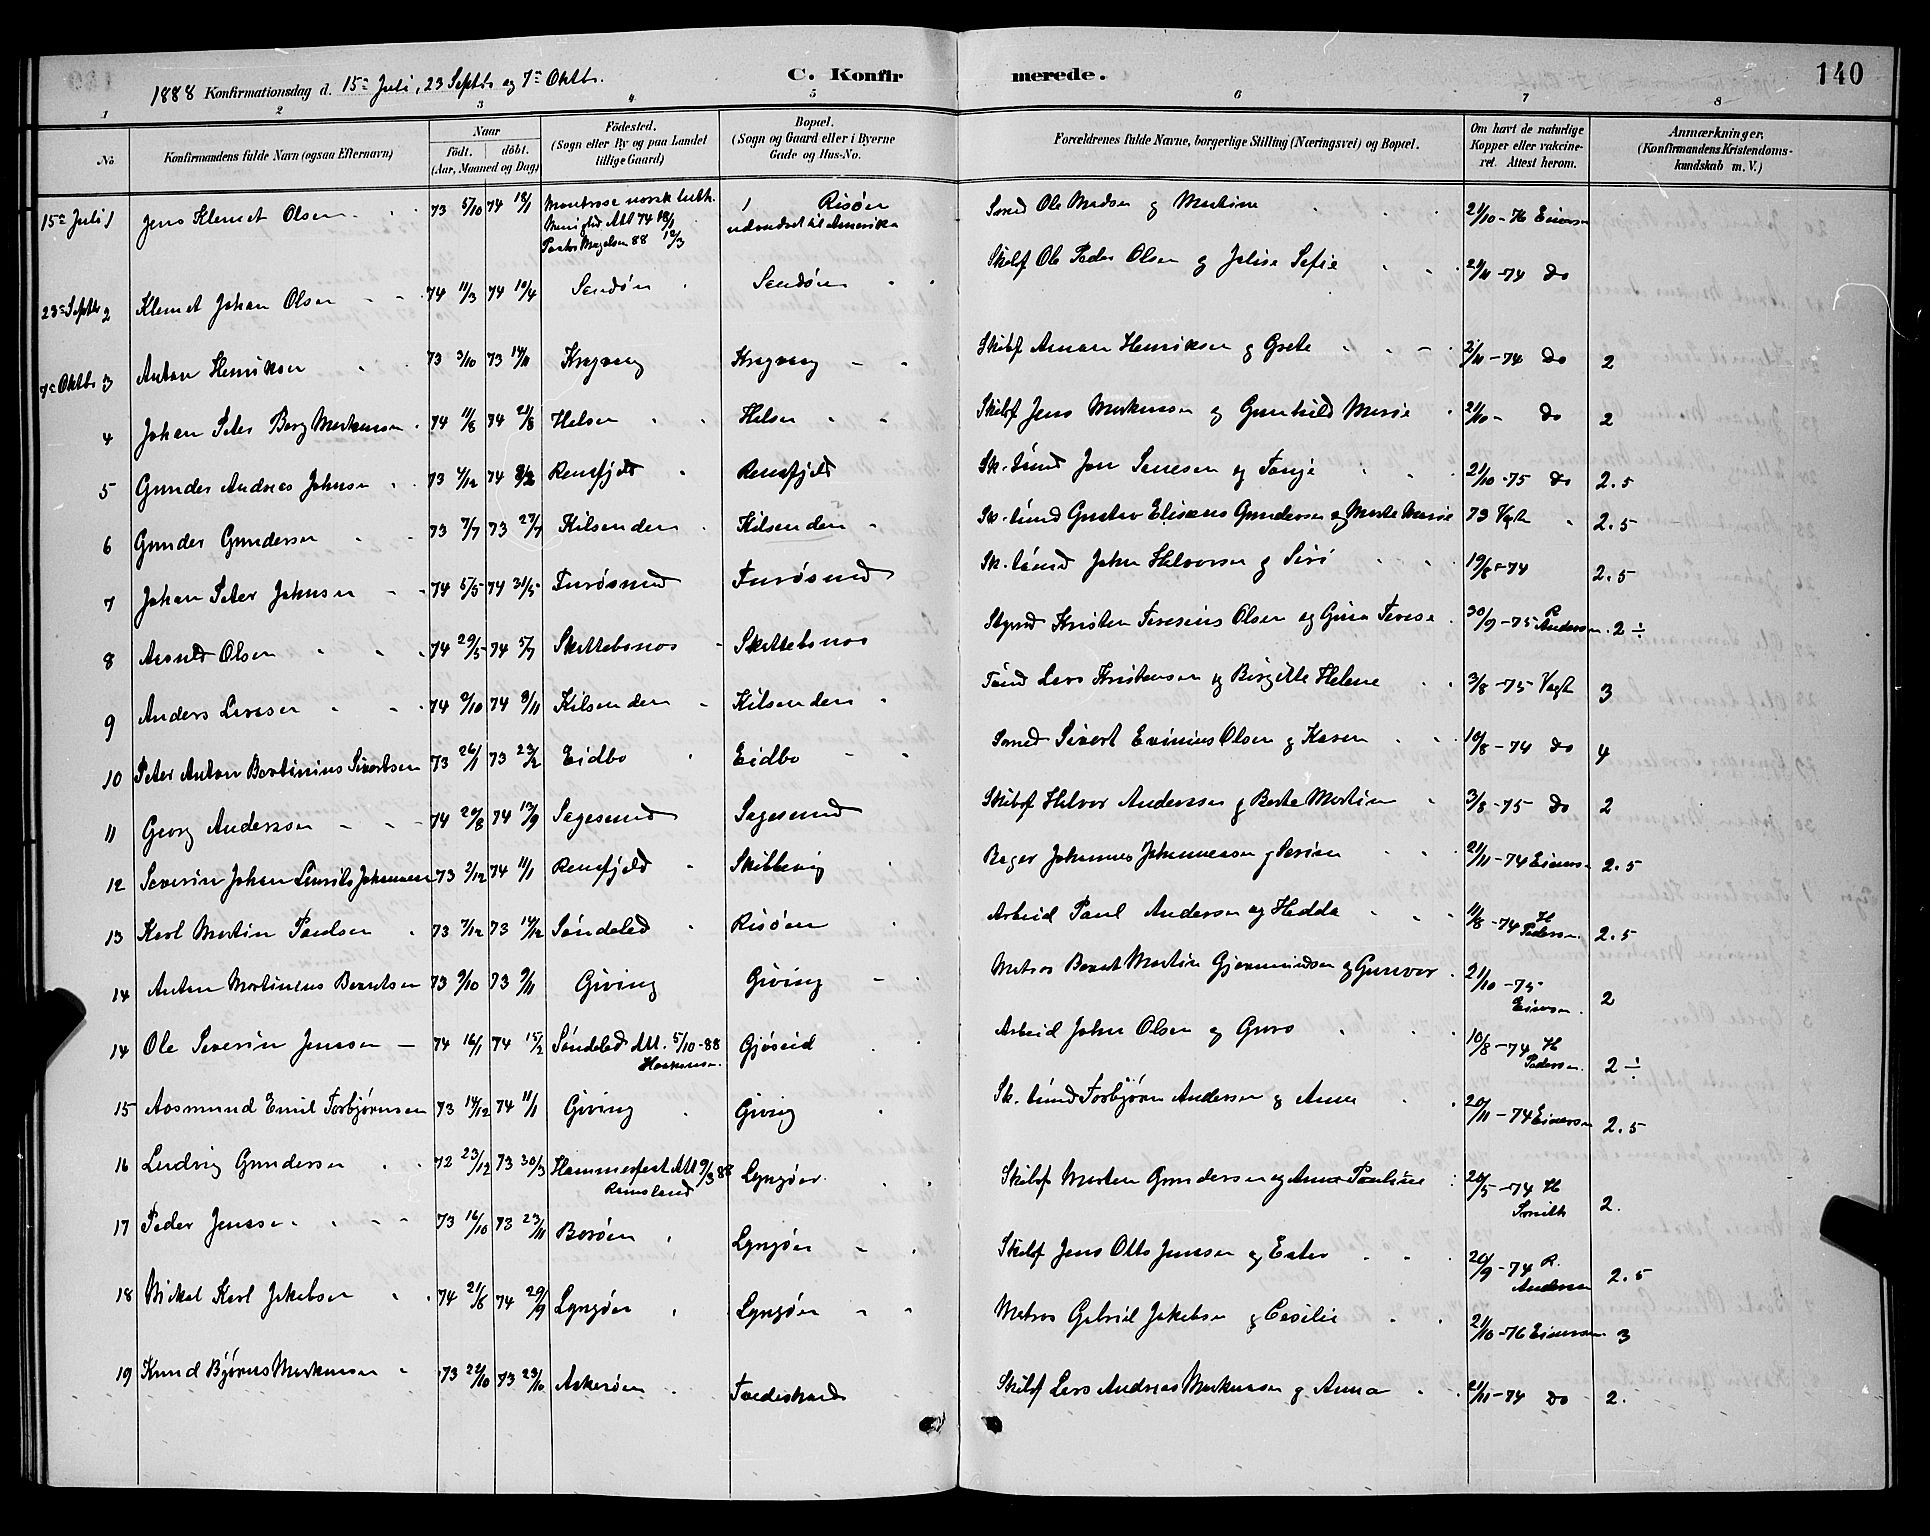 140
1888 Konfirmationsdag d. 15de Juli, 23 Septbr og 7de Oktbr.
C. Konfirmerede.
1 2 3 4 5 6 7 8
No
Konfirmandens fulde Navn (ogsaa Efternavn)
Naar
födt. döbt.
(Aar, Maaned og Dag)
Födested.
(Sogn eller By og paa Landet
tillige Gaard)
Bopæl.
(Sogn og Gaard eller i Byerne
Gade og Hus-No.
Forældrenes fulde Navne, borgerlige Stilling (Næringsvei) og Bopæl.
Om havt de naturlige
Kopper eller vakcine-
ret. Attest herom.
Anmærkninger,
(Konfirmandens Kristendoms-
kundskab m. V.)
15de Juli 1 Jens Klemet Olsen 73 5/10 74 18/1 Montrose norsk luth. Menighed Att 74 18/1 Pastor Magelsen 88 12/3 Risöen udvandret til Amerika Ole Madsen og Martine 21/10-76 Einersen
23de Septbr 2 Klemet Johan Olsen 74 11/3 74 19/4 Sandöen Sandöen Skibsf Ole Peder Olsen og Jelise Sofie 21/11-74 do
7de Oktbr 3 Anton Henriksen 73 3/10 73 14/11 Kragvaag Kragvaag Skibsf Aman Henriksen og Grete 21/11-74 do 2
4 Johan Peter Berg Markussen 74 11/8 74 21/8 Helsen Helsen Skibsf Jens Markussen og Gunhild Marie 21/10- do 2
5 Gunder Andreas Johnsen 73 4/12 74 8/2 Rensfjeld Rensfjeld Sk. tömd Jon Senesen og Tonje 21/10-75 do 2.5
6 Gunder Gundersen 73 7/7 73 27/7 Kilsenden Kilsenden Sk. tömd Gustav Eliseus Gundersen og Marte Marie 73 Vogt 2.5
7 Johan Peter Johnsen 74 5/5 74 31/5 Furösund Furösund Sk. tömd John Halvorsen og Siri 19/8-74 2.5
8 Arnold Olsen 74 29/5 74 5/7 Skottebsnos Skottebsnos Styrmd Kristen Teresius Olsen og Gina Terese 30/9-75 R Andersen 2÷
9 Anders Larsen 74 9/10 74 9/11 Kilsenden Kilsenden Tömd Lars Kristensen og Birgitte Helene 3/8-75 Vogt 3
10 Peter Anton Bertinius Sivertsen 73 26/1 73 23/2 Eidbo Eidbo Sivert Evinius Olsen og Karen 10/8-74 do 4
11 Georg Anderssen 74 29/8 74 13/9 Sagesund Sagesund Skibsf Halvor Anderssen og Berte Martine 3/8-75 do 2
12 Severin Johan Johannesen 73 2/12 74 11/1 Rensfjeld Skibbevig Bager Johannes Johannessen og Serine 21/11-74 Einersen 2.5
13 Karl Martin Paulsen 73 7/12 73 14/12 Söndeled Risöen Arbeid Paul Andersen og Hedda 11/8-74 H Pedersen 2.5
14 Anton Martinius Berntsen 73 9/10 73 9/11 Giving Giving Matros Bernt Martin Gjermundsen og Gunvor 21/10-75 Einersen 2
14 Ole Severin Jenssen 74 16/1 74 15/2 Söndeled Att. 5/10-88 Gjöseid Arbeid John Olsen og Guro 10/8-74 H Pedersen 2÷
15 Aasmund Emil Torbjörnsen 73 14/12 74 11/1 Giving Giving Sk. tömd Torbjörn Andersen og Anne 20/11-74 Einersen 2.5
16 Ludvig Gundersen 72 23/12 73 30/3 Hammerfest Att 9/3 88 Ramsland Lyngöer Skibsf Morten Gundersen og Anna Pauline 20/5-74 H Smith 2.
17 Peder Jenssen 73 16/10 73 23/11 Boröen Lyngöen Skibsf Jens Otto Jenssen og Ester 20/9-74 R. Andersen 2.5
18 Mikal Karl Jakobsen 74 21/8 74 20/9 Lyngöen Lyngöen Matros Gabriel Jakobsen og Cesilie 21/10-76 Einersen 3
19 Knud Björnus Markussen 73 22/10 73 23/10 Askeröen Tvedestrand Skibsf Lars Andreas Markussen og Anna 21/11-74 do 2.